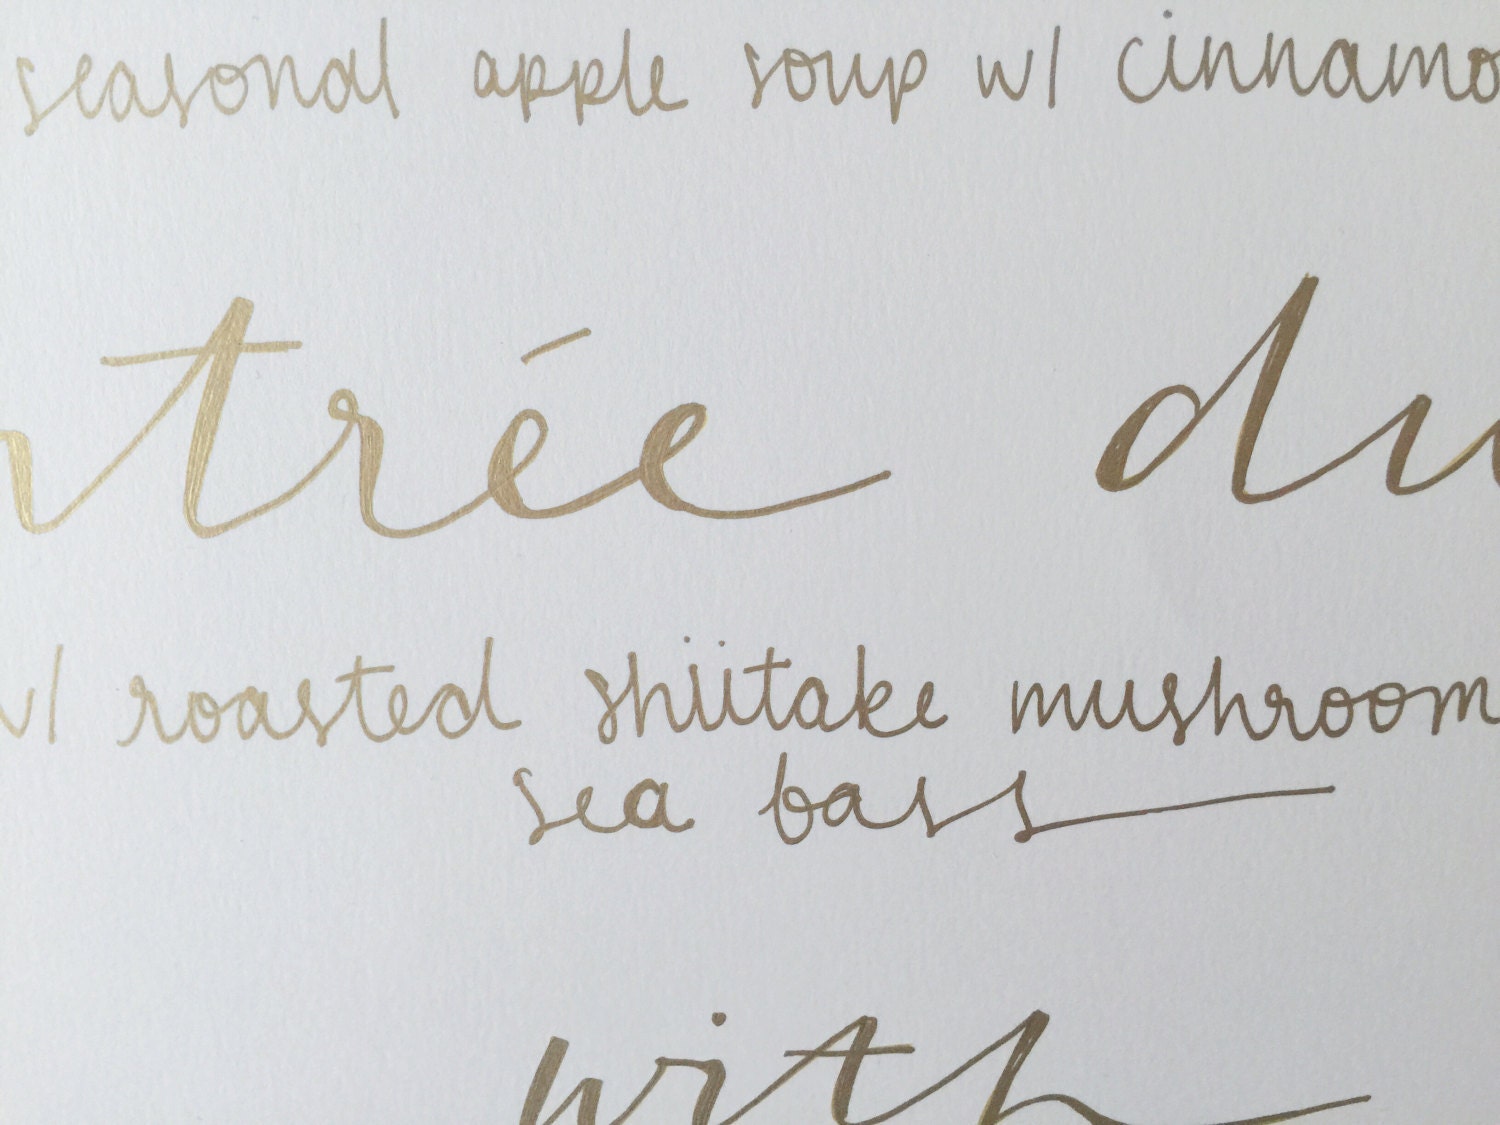 seasonal apple soup w/ cinnamo
ntrée du
w/ roasted shiitake mushroom
sea bass
with